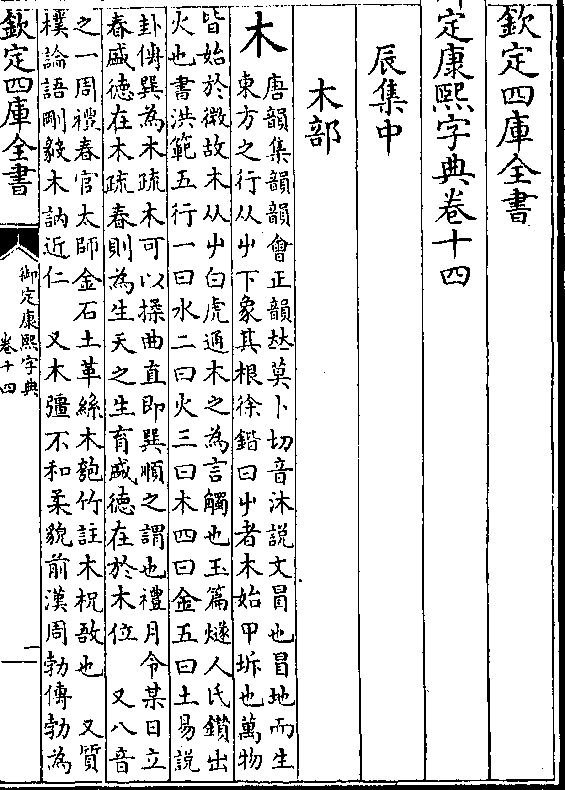 欽定四庫全書
御定康熙字典卷十四
辰集中
木部
木
唐韻集韻韻會正韻𠀤莫卜切音沐說文冒也冒地而生
東方之行从屮下象其根徐鍇曰屮者木始甲坼也萬物
皆始於微故木从屮白虎通木之為言觸也玉篇燧人氏鑽出
火也書洪範五行一曰水二曰火三曰木四曰金五曰土易說
卦傳巽為木疏木可以揉曲直即巽順之謂也禮月令某日立
春盛德在木疏春則為生天之生育盛德在於木位 又八音
之一周禮春官太師金石土革絲木匏竹註木柷敔也 又質
樸論語剛毅木訥近仁 又木彊不和柔貌前漢周勃傳勃為
欽定四庫全書
御定康熙字典
卷十四
一